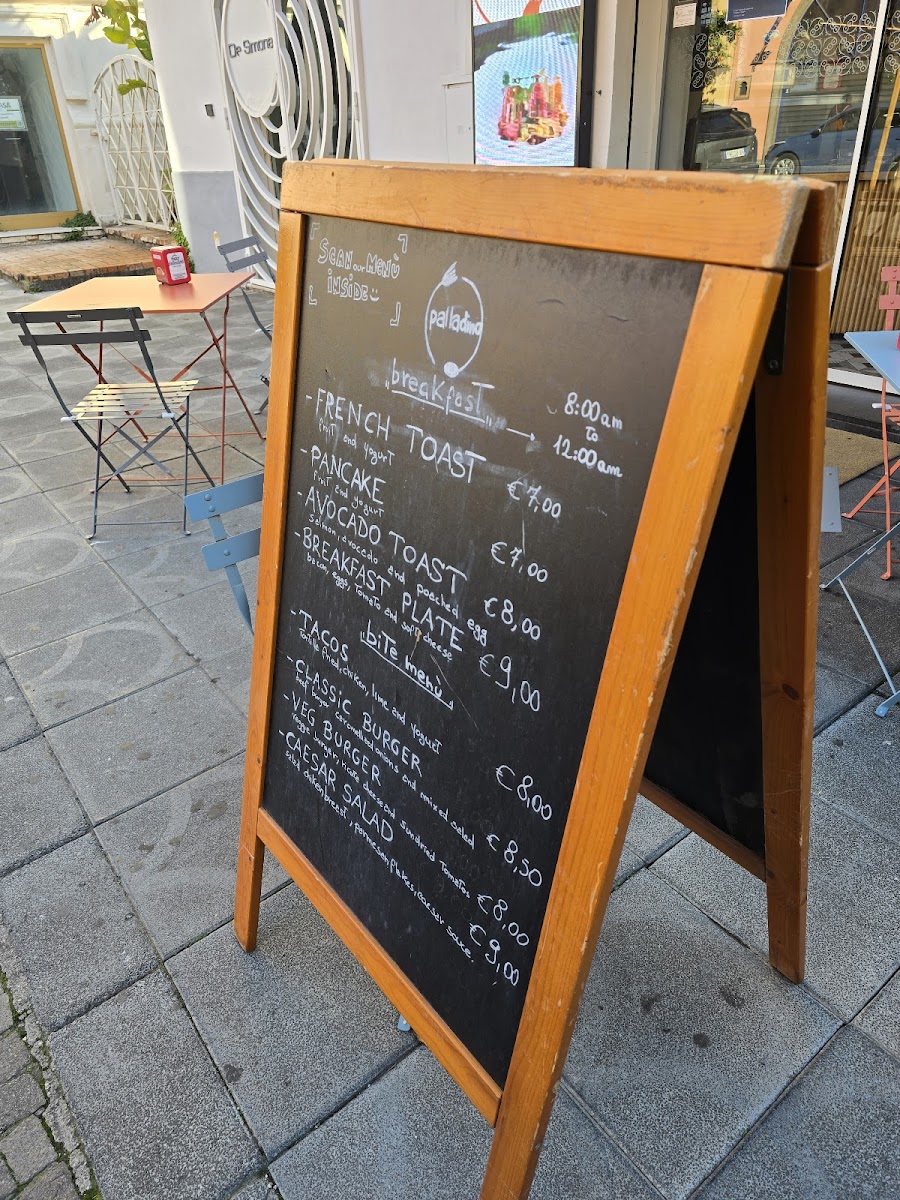 De Simona
SCAN our MENÙ
INSIDE
palladino
"breakfast"
8:00 am
To
12:00 am
- FRENCH TOAST €7,00
fruit and yogurt
- PANCAKE €7,00
fruit and yogurt
- AVOCADO TOAST €8,00
salmon, avocado and poached egg
- BREAKFAST PLATE €9,00
bacon, eggs, tomato and soft cheese
"bite menù"
- TACOS €8,00
Tortilla fried, chiken, lime and yogurt
- CLASSIC BURGER €8,50
beef burger caramelized onions and mixed salad
- VEG BURGER €8,00
veggie burger, cheese and sundried tomatos
- CAESAR SALAD €9,00
salad, chikenbreast, parmesan flakes, caeser sauce.